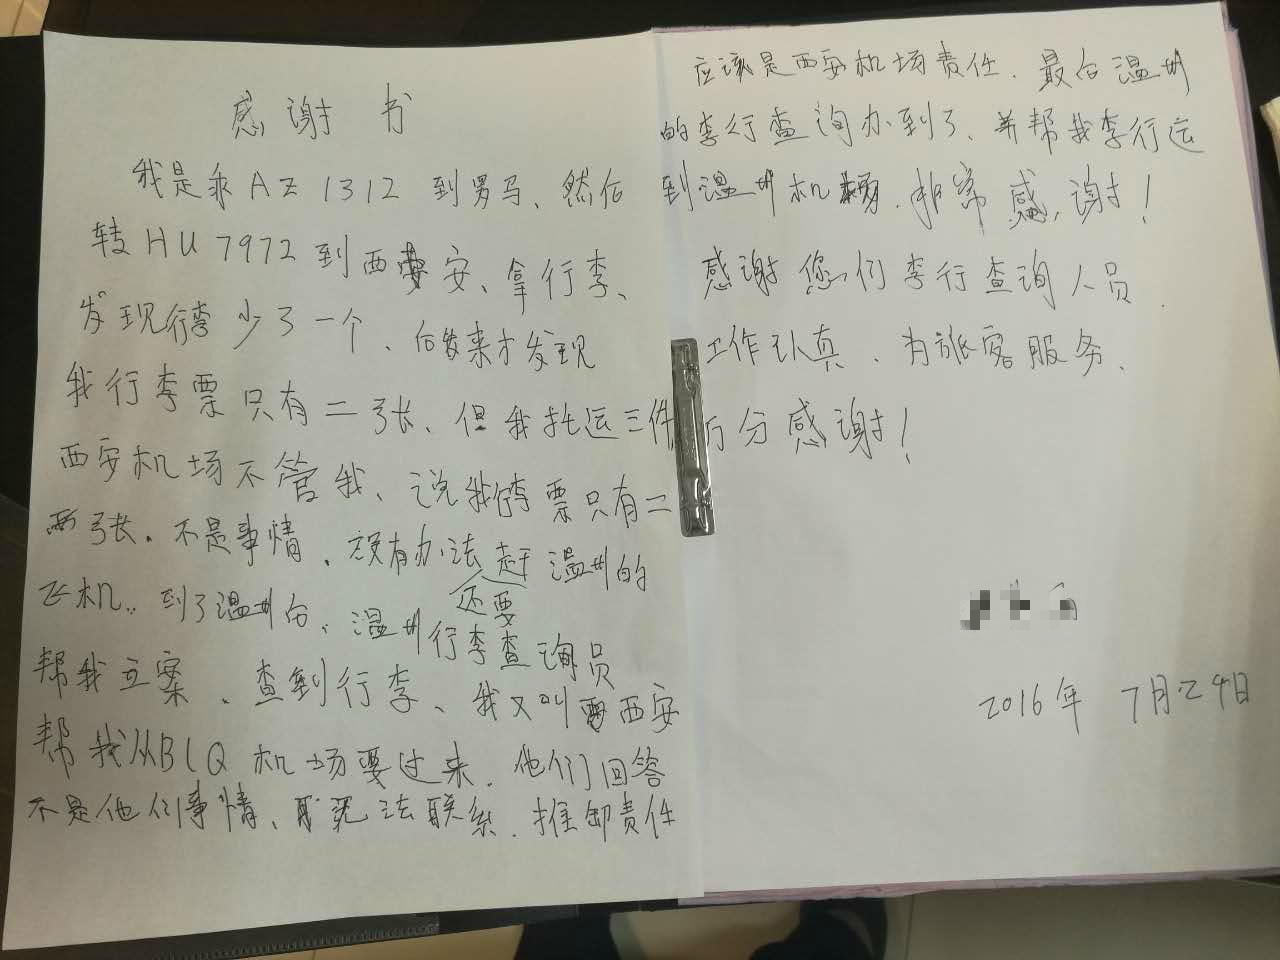 感谢书
我是乘AZ 1312 到罗马、然后
转HU 7972到西安、拿行李、
发现行李少了一个、后来才发现
我行李票只有二张、但我托运三件
西安机场不管我、说我行李票只有二
两张.不是事情.没有办法赶温州的
飞机..到了温州后、温州行李查询员
还要
帮我立案、查到行李、我又叫西安
帮我从BLQ机场要过来.他们回答
不是他们事情、无法联系.推卸责任
应该是西安机场责任.最后温州
的李行查询办到了、并帮我李行运
到温州机场.非常感谢!
感谢您们李行查询人员.
工作认真、为旅客服务、
万分感谢!
2016年 7月24日